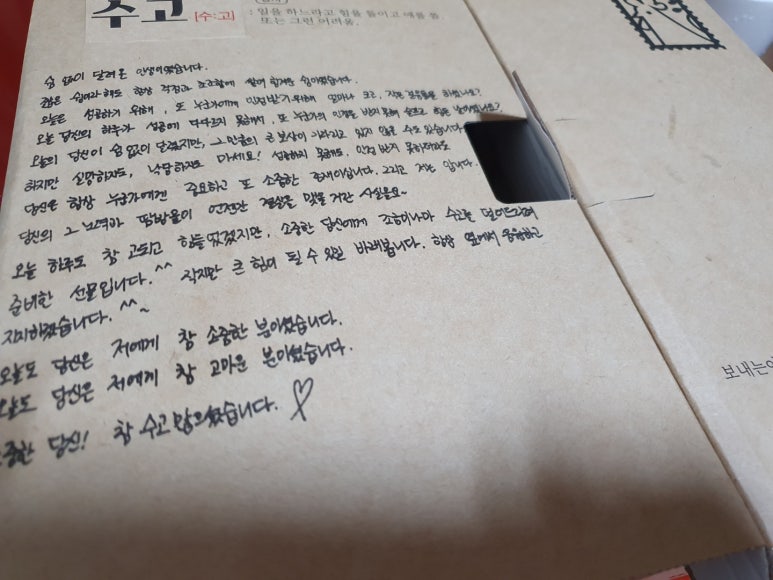 수고 [수:고]
(명사)
: 일을 하느라고 힘을 들이고 애를 씀.
또는 그런 어려움.
쉼 없이 달려온 인생이었습니다.
항상 걱정과 조급함에
오늘은 성공하기 위해, 또 누군가에게 인정받기 위해 얼마나 크고, 작은
오늘 당신의 하루가 성공에 다다르지 못해서, 또 누군가의 인정을 받지 못해 슬프고
오늘의 당신이 쉼 없이 달렸지만, 그만큼의 큰 보상이 기다리고 있지 않을 수도 있습니다.
하지만 실망하지도, 낙담하지도 마세요! 성공하지 못해도, 인정 받지 못하더라도
당신은 항상 누군가에겐 중요하고 또 소중한 존재이십니다. 그리고 저는 압니다.
당신의 그 노력과 땀방울이 언젠간 결실을 맺을 거란 사실을요~
오늘 하루도 참 고되고 힘들었겠지만, 소중한 당신에게 조금이나마 수고를 덜어드리려
준비한 선물입니다.^^ 작지만 큰 힘이 될 수 있길 바래봅니다. 항상 옆에서 응원하고
지지하겠습니다.^^~
오늘도 당신은 저에게 참 소중한 분이셨습니다.
오늘도 당신은 저에게 참 고마운 분이셨습니다.
소중한 당신! 참 수고 많으셨습니다. ♡
보내는이